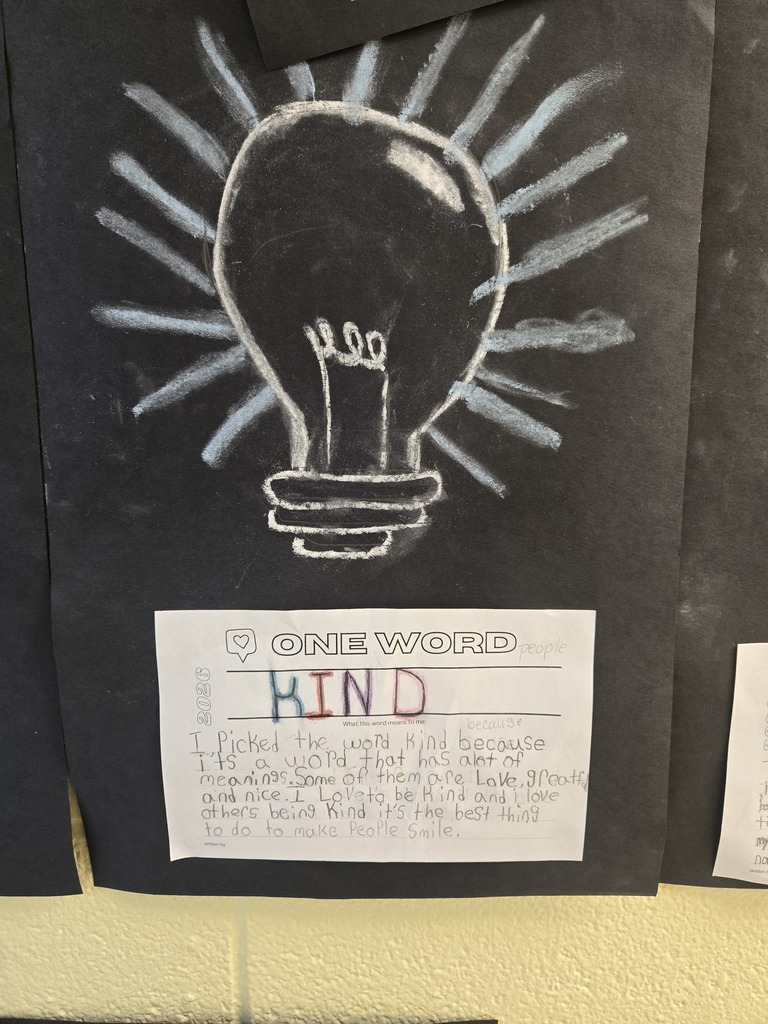 ONE WORD people
2026
KIND
What this word means to me:
because
I Picked the word kind because
it's a word that has alot of
meanings. Some of them are Love, greatful
and nice. I Love to be Kind and i love
others being Kind it's the best thing
to do to make People Smile.
Written by